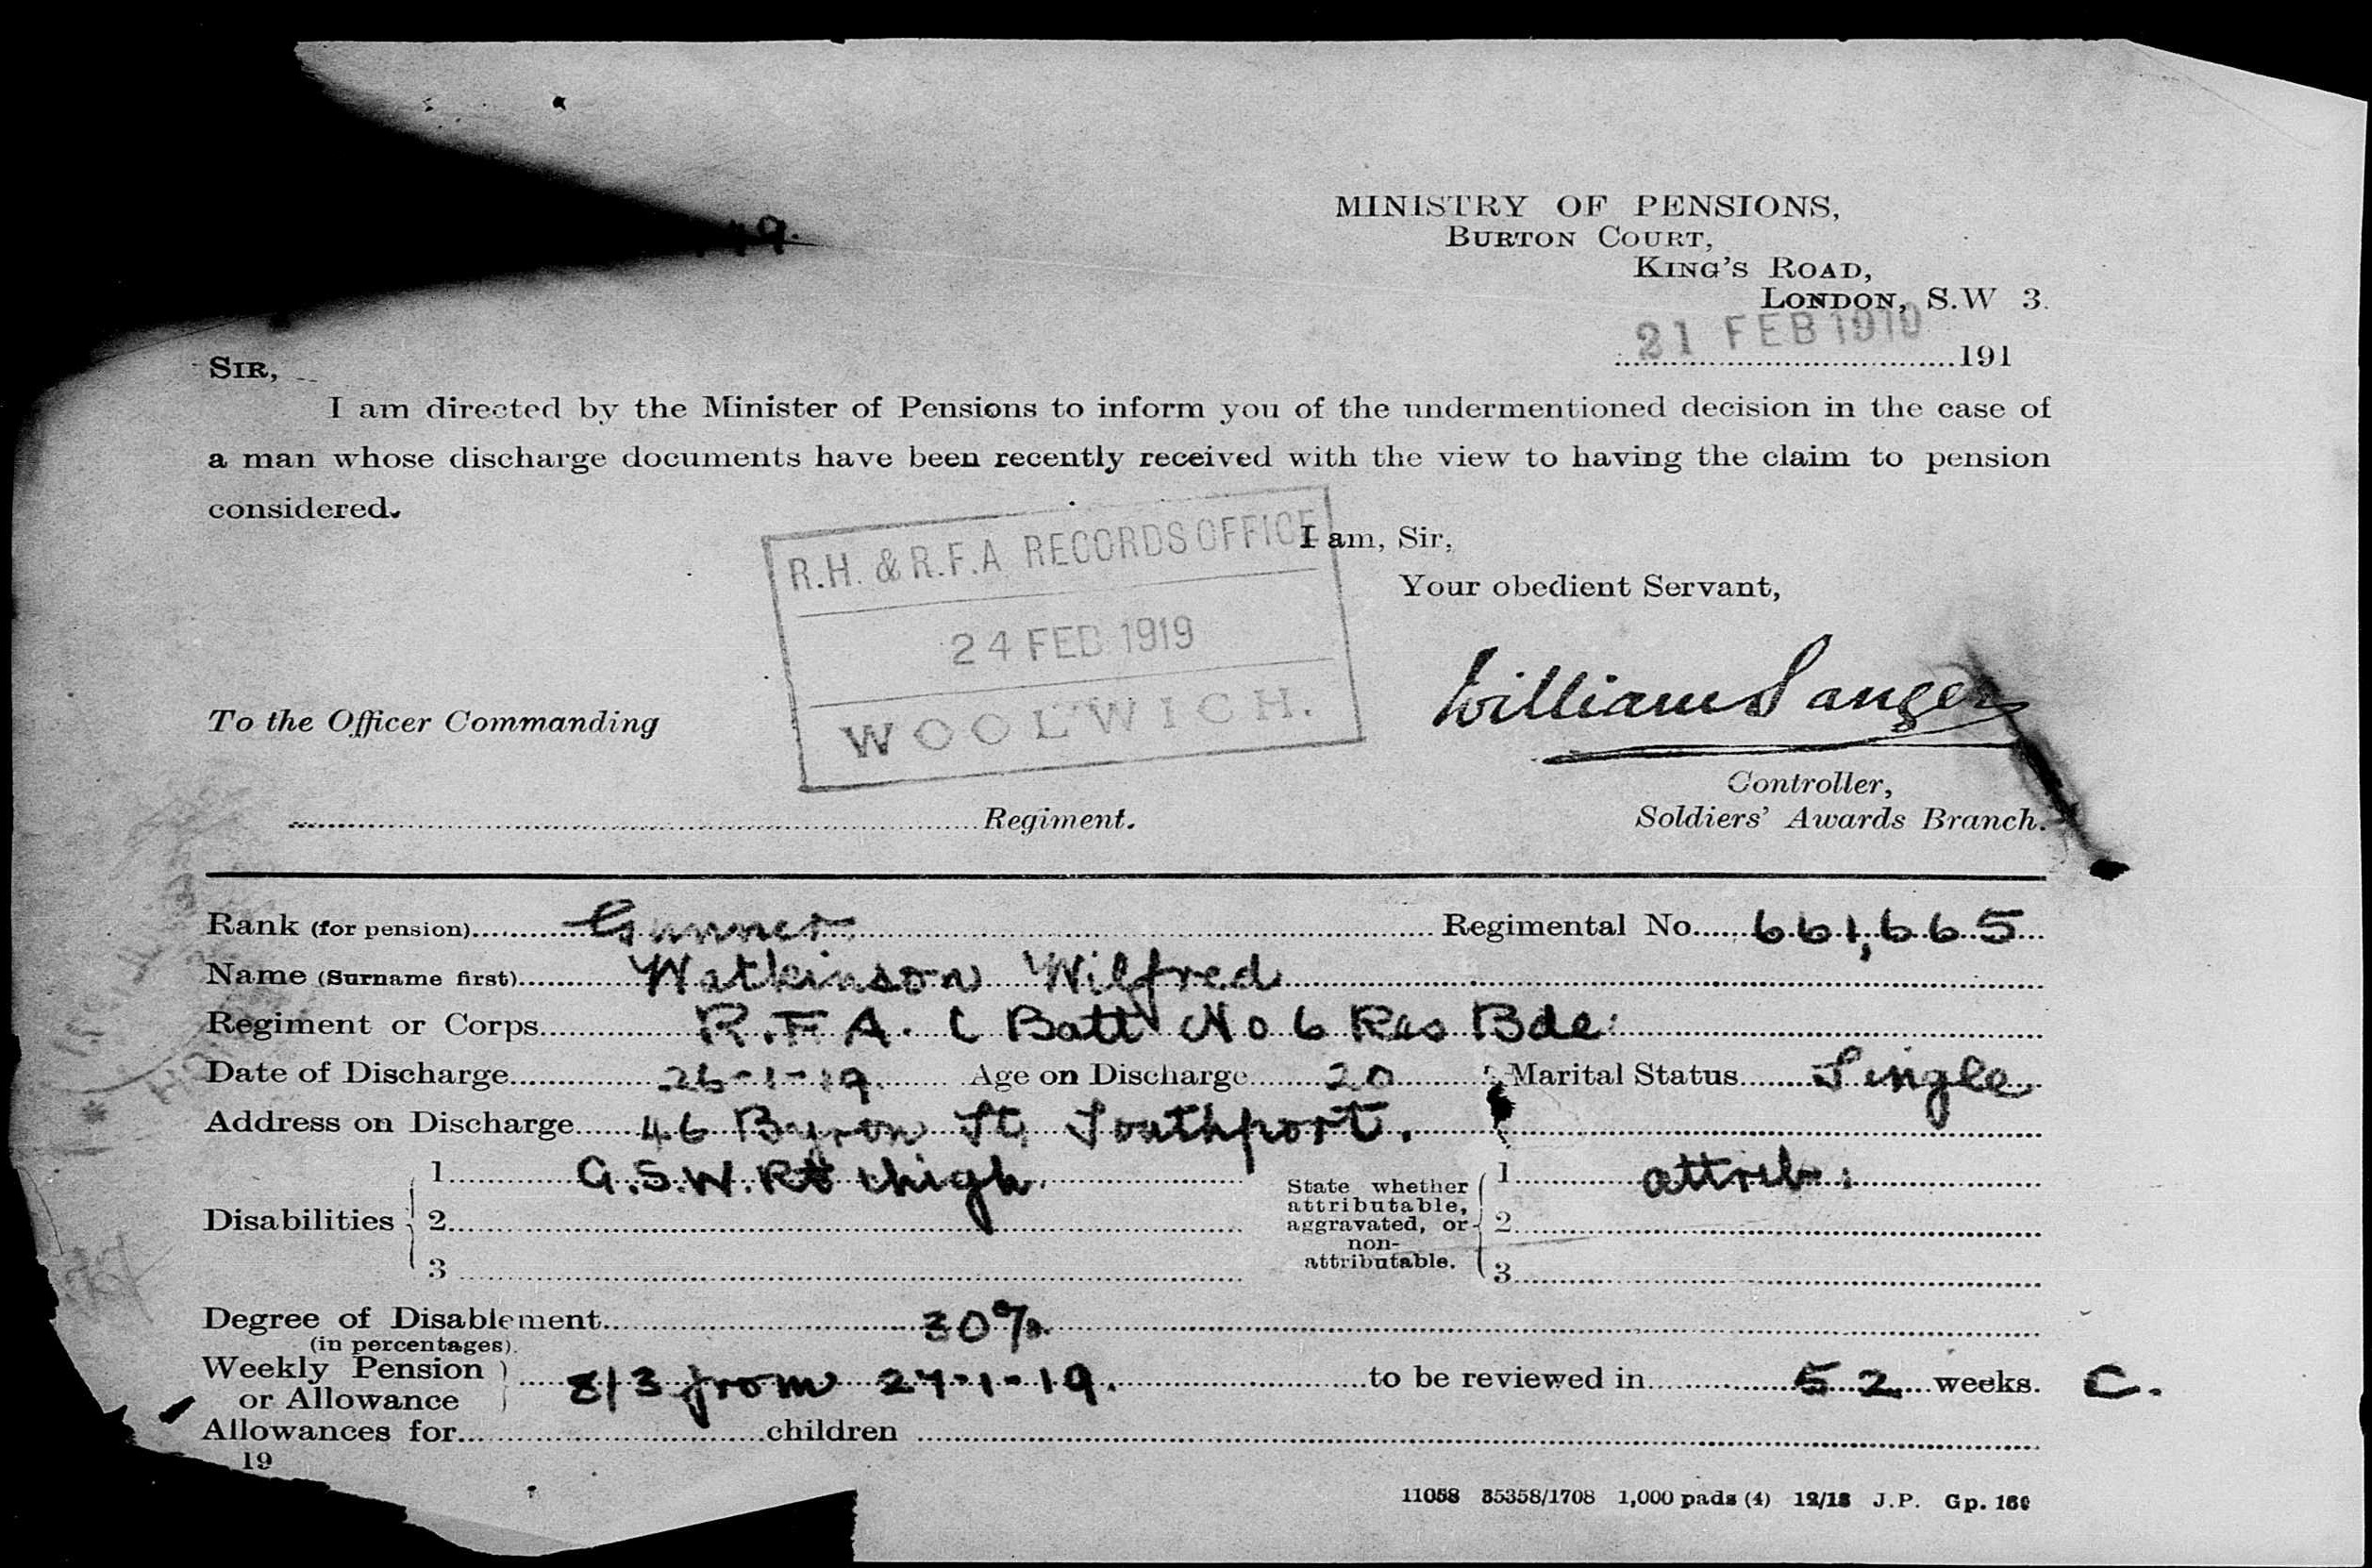 19.
MINISTRY OF PENSIONS,
BURTON COURT,
KING'S ROAD,
LONDON, S.W 3.
21 FEB 1919
191
SIR,
I am directed by the Minister of Pensions to inform you of the undermentioned decision in the case of
a man whose discharge documents have been recently received with the view to having the claim to pension
considered.
R.H. & R.F.A RECORDS OFFICE
24 FEB 1919
WOOLWICH.
I am, Sir,
Your obedient Servant,
William Sanger
To the Officer Commanding
Controller,
Regiment.
Soldiers' Awards Branch.
Rank (for pension) Gunner Regimental No. 661,665
Name (Surname first) Watkinson Wilfred
Regiment or Corps R.F.A. C Batt No 6 Res Bde.
Date of Discharge 26-1-19. Age on Discharge 20 Marital Status Single
Address on Discharge 46 Byron St, Southport.
Disabilities 1 G.S.W. Rt thigh.
2
3
State whether attributable, aggravated, or non-attributable. 1 attrib.
2
3
Degree of Disablement 30%
(in percentages).
Weekly Pension or Allowance 8/3 from 27-1-19. to be reviewed in 52 weeks. C.
Allowances for children
19
11058 35358/1708 1,000 pads (4) 12/18 J.P. Gp.